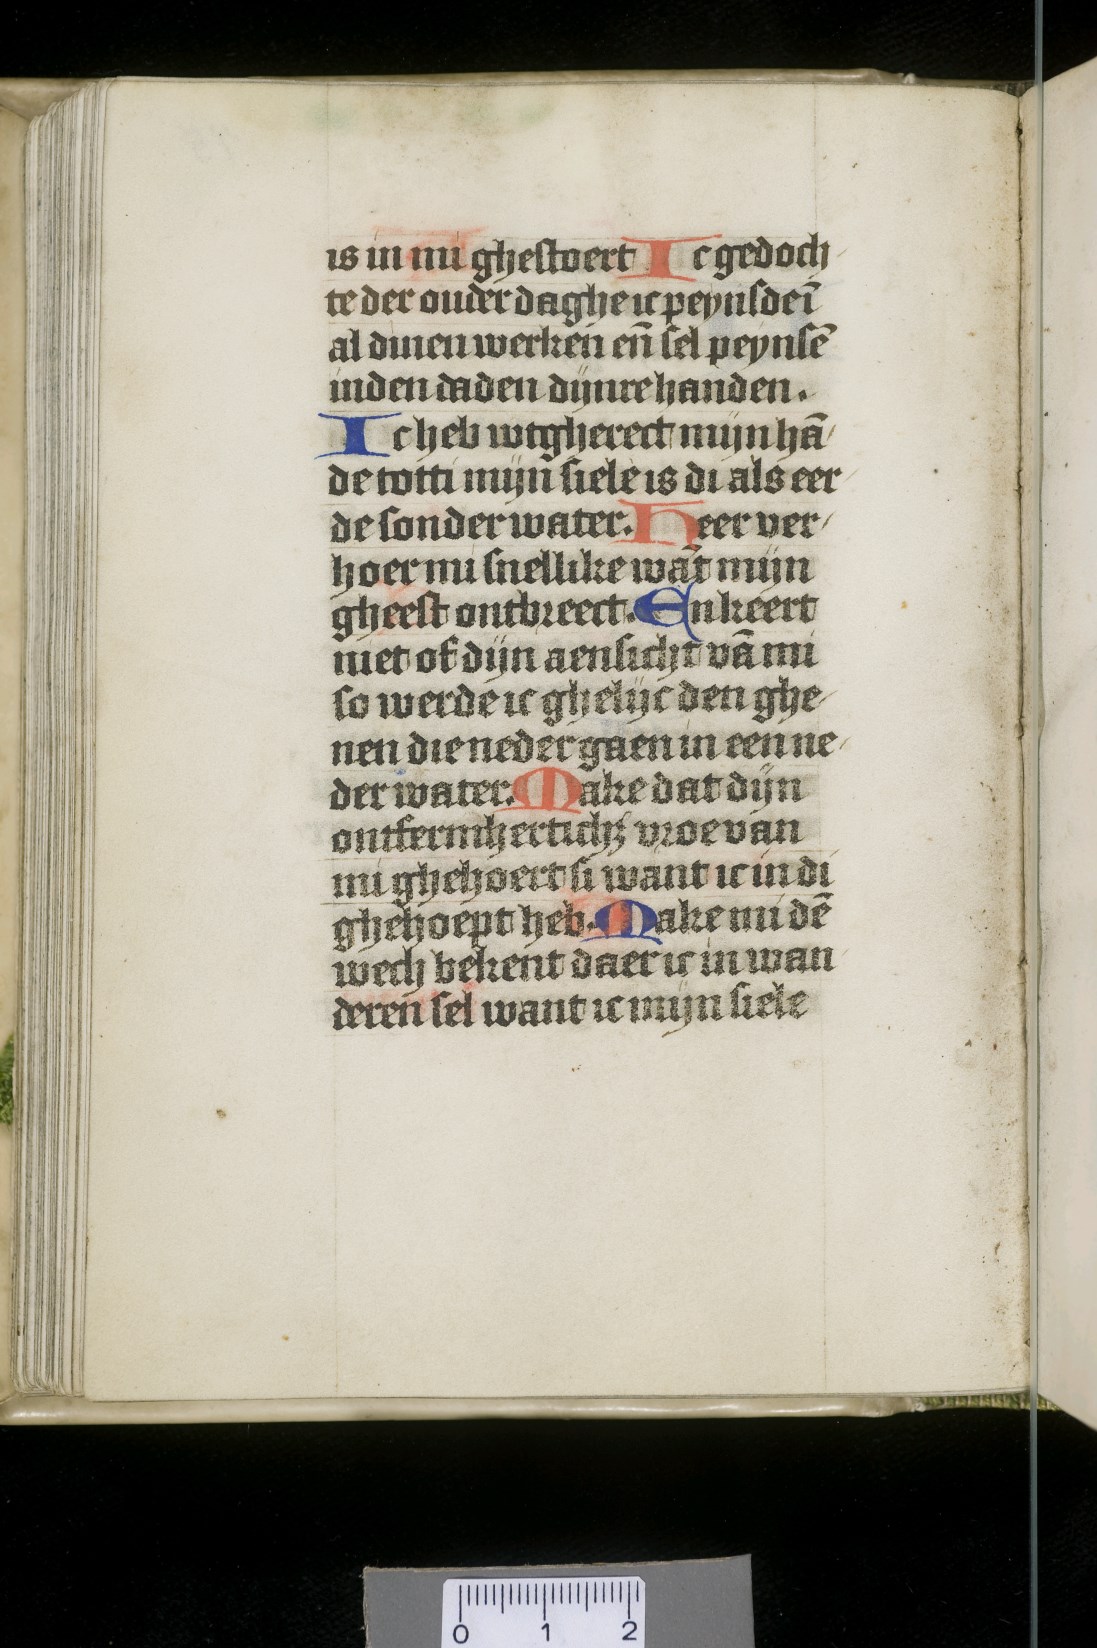 is in mi ghestoert Ic gedoch
te der ouder daghe ic peynsde ī
al dinen werken en̄ sel peynsē
in den daden dijnre handen.
Ic heb wtgherect mijn hā
de totti mijn siele is di als eer
de sonder water. Heer ver
hoer mi snellike wāt mijn
gheest ontbreect. En keert
niet of dijn aensicht vā mi
so werde ic ghelijc den ghe
nen die neder gaen in een ne
der water. Make dat dijn
ontfermherticHꝫ vroe van
mi ghehoert si want ic in di
ghehoept heb. Make mi dē
wech bekent daer ic in wan
deren sel want ic mijn siele
0 1 2